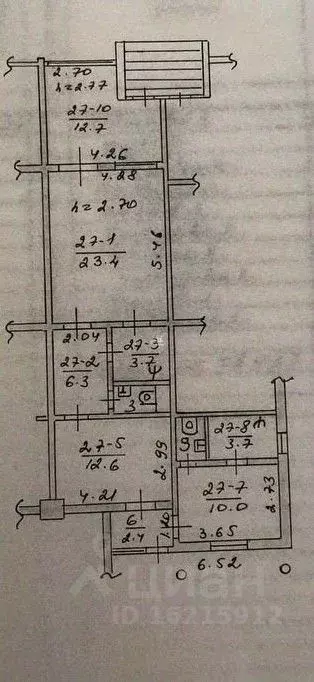 2.70
h=2.77
27-10
12.7
4.26
4.28
h=2.70
27-1
23.4
5.46
2.04
27-2
6.3
27-3
3.7
4
3
27-5
12.6
2.99
4.21
9
27-8
3.7
27-7
10.0
2.73
3.65
6
2.4
1.20
6.52
циан
ID 16215912